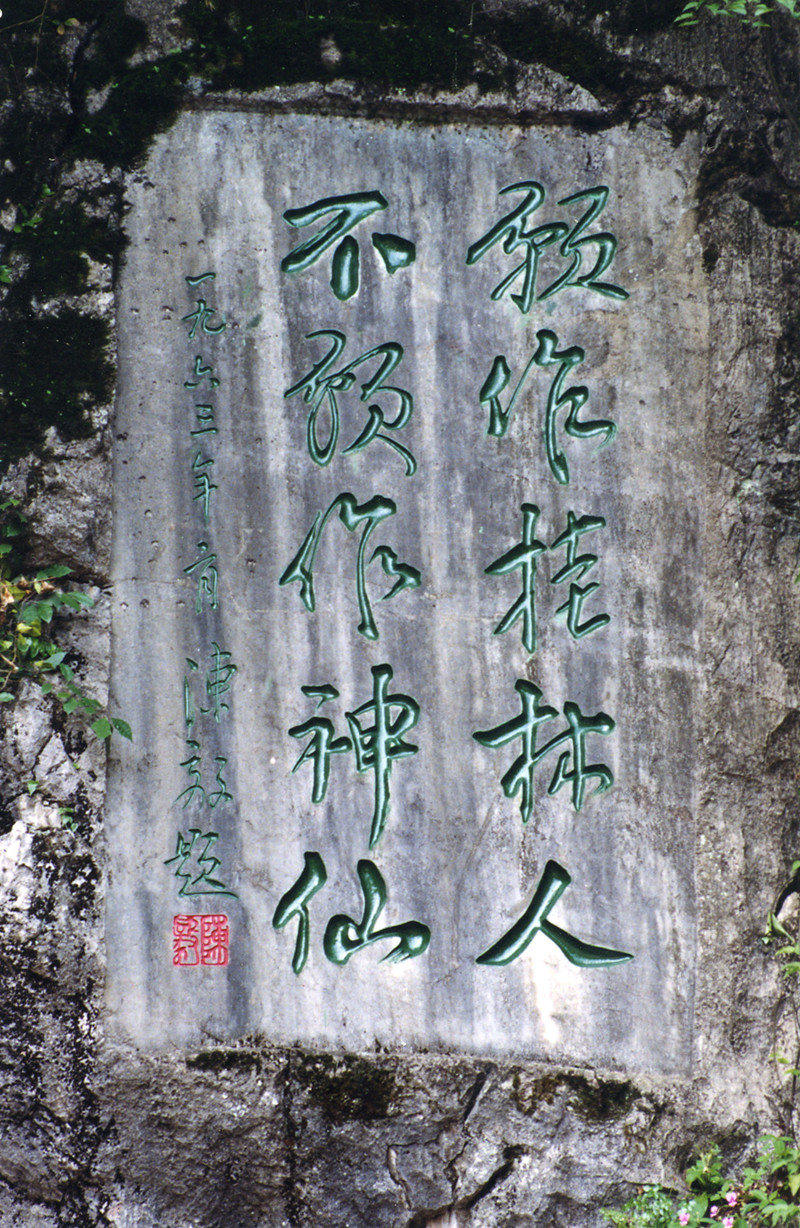 願作桂林人
不願作神仙
一九六三年二月 陳毅題
陳毅